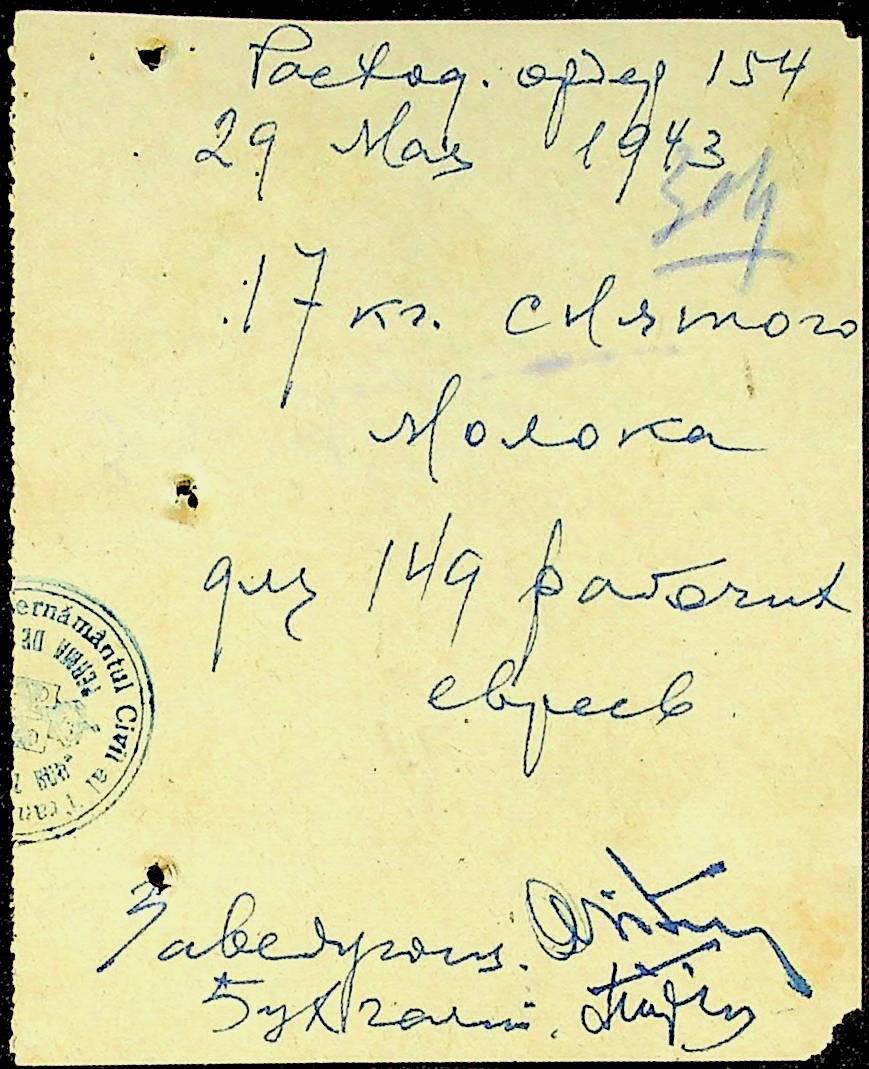 Расход. ордер 154
29 Мая 1943
17 кг. снятого
молока
для 149 рабочих
евреев
ernământul Civil al Tran
Заведующ.
Бухгалт.